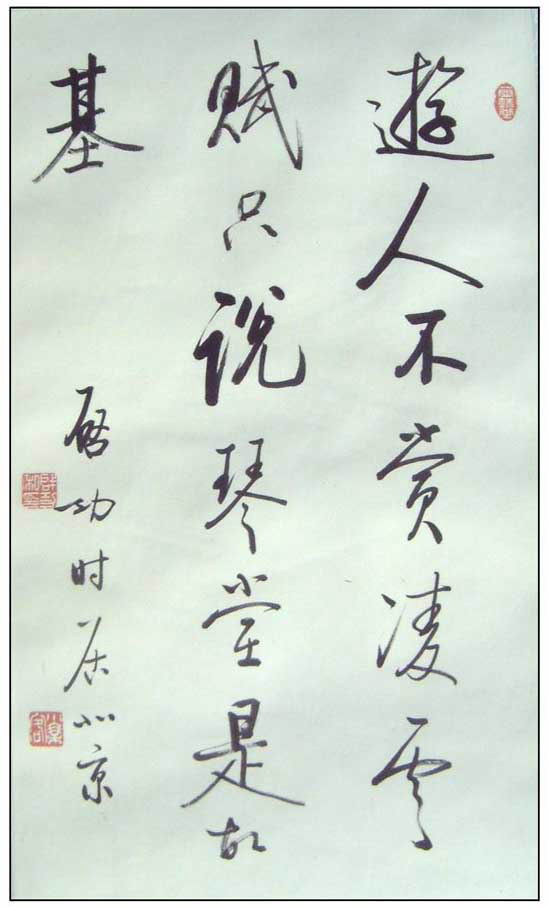 遊人不賞凌雲
賦只說琴堂是故
基
啟功时居北京